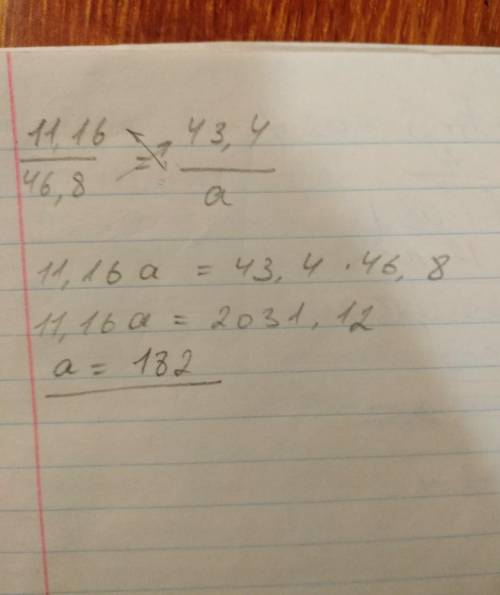 11,16 / 46,8 = 43,4 / a
11,16 a = 43,4 · 46,8
11,16 a = 2031,12
a = 182